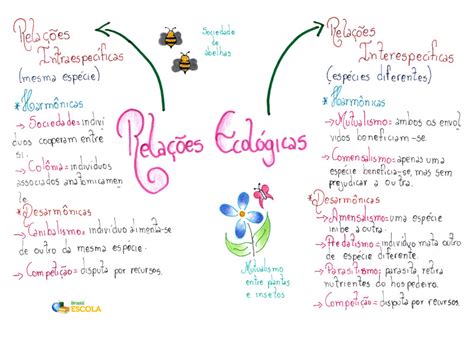 Relações
Intraespecíficas
(mesma espécie)
*Harmônicas
→ Sociedade: indiví
duos cooperam entre
si.
→ Colônia: indivíduos
associados anatomicamen
te.
*Desarmônicas
→ Canibalismo: indivíduo alimenta-se
de outro da mesma espécie.
→ Competição: disputa por recursos.
Brasil
ESCOLA
Sociedade
de
abelhas
Relações Ecológicas
Mutualismo
entre plantas
e insetos
Relações
Interespecíficas
(espécies diferentes)
*Harmônicas
→ Mutualismo: ambos os envol
vidos beneficiam-se.
→ Comensalismo: apenas uma
espécie beneficia-se, mas sem
prejudicar a outra.
*Desarmônicas
→ Amensalismo: uma espécie
inibe a outra.
→ Predatismo: indivíduo mata outro
de espécie diferente.
→ Parasitismo: parasita retira
nutrientes do hospedeiro.
→ Competição: disputa por recursos.